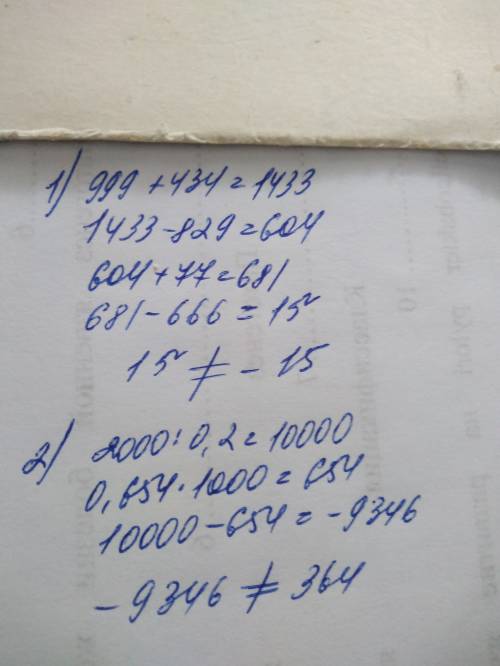 1) 999 + 434 = 1433
1433 - 829 = 604
604 + 77 = 681
681 - 666 = 15
15 ≠ - 15
2) 2000 : 0,2 = 10000
0,654 · 1000 = 654
10000 - 654 = - 9346
- 9346 ≠ 364